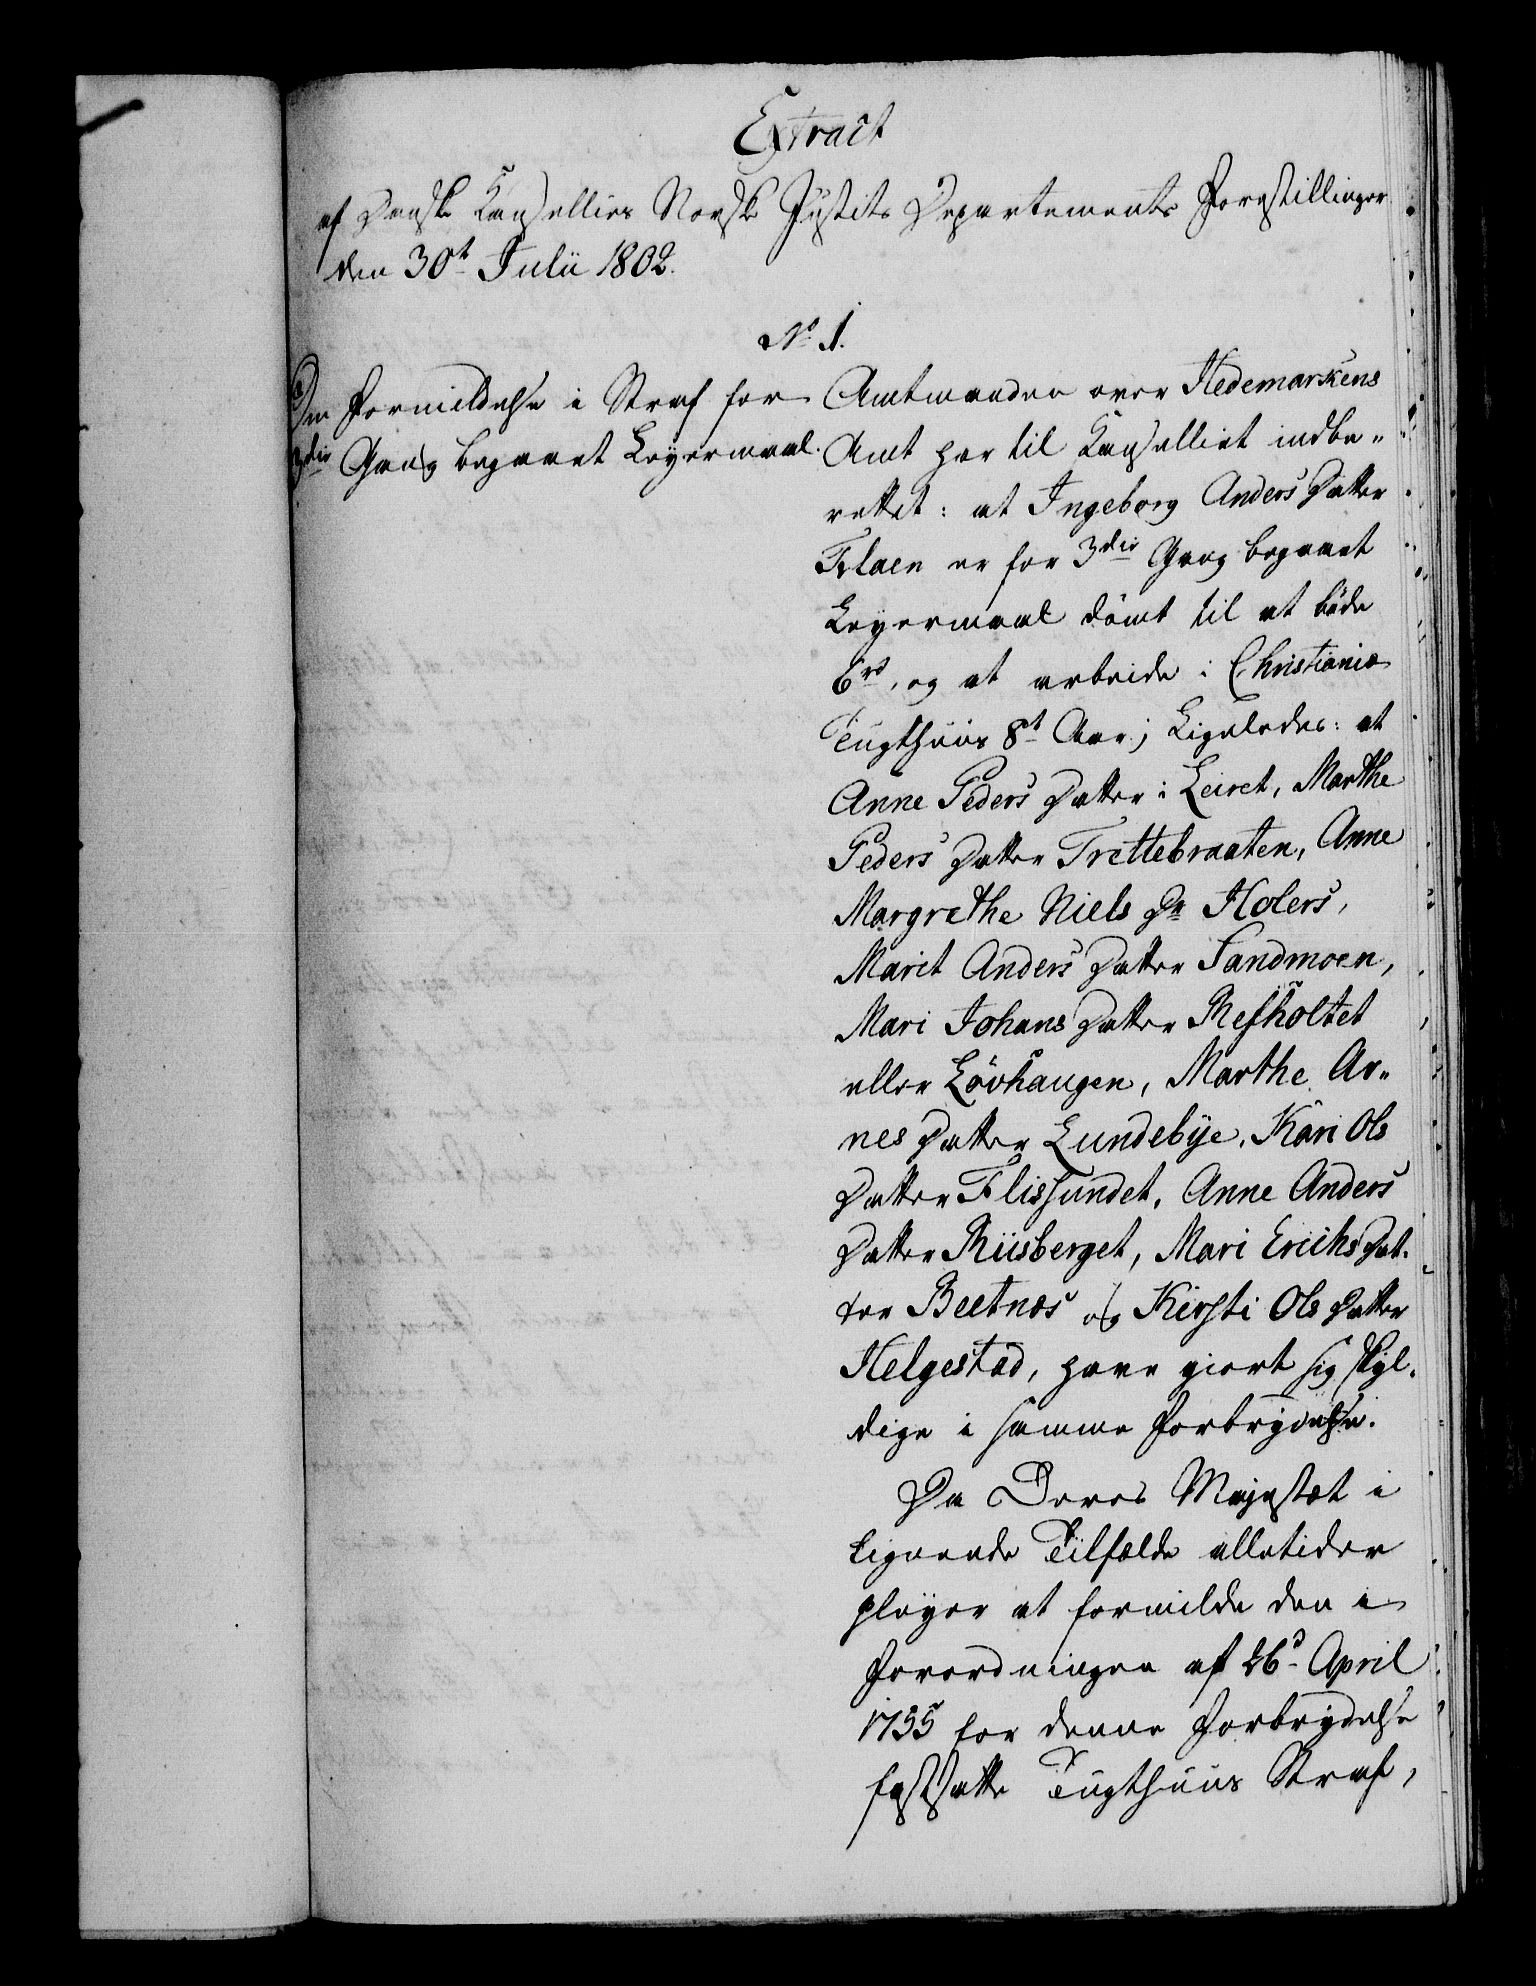 Extract
af Danske Kancellies Norske Justits Departements Forestillinger
den 30t Julii 1802.
No 1.
Om Formildelse i Straf for
3die Gang begaaet Leyermaal.
Amtmanden over Hedemarkens
Amt har til Kancelliet indbe„
rettet: at Ingeborg Anders Datter
Flaen er for 3die Gang begaaet
Leyermaal dömt til at böde
6rd, og at arbeide i Christiania
Tugthuus 8t Aar; Ligeledes: at
Anne Peders Datter i Leiret, Marthe
Peders Datter Trettebraaten, Anne
Margrethe Niels Dr Holers,
Marit Anders Datter Sandmoen,
Mari Johans Datter Refholtet
eller Lövhaugen, Marthe Ar„
nes Datter Lundebye, Kari Ols
Datter Flissundet, Anne Anders
Datter Riisberget, Mari Erichs Dat„
ter Beetnæs og Kirsti Ols Datter
Helgestad, have giort sig skyl„
dige i samme Forbrydelse.
Da Deres Majestæt i
lignende Tilfælde alletider
pleyer at formilde den i
Forordningen af 26d April
1755 for denne Forbrydelse
fastsatte Tugthuus Straf,